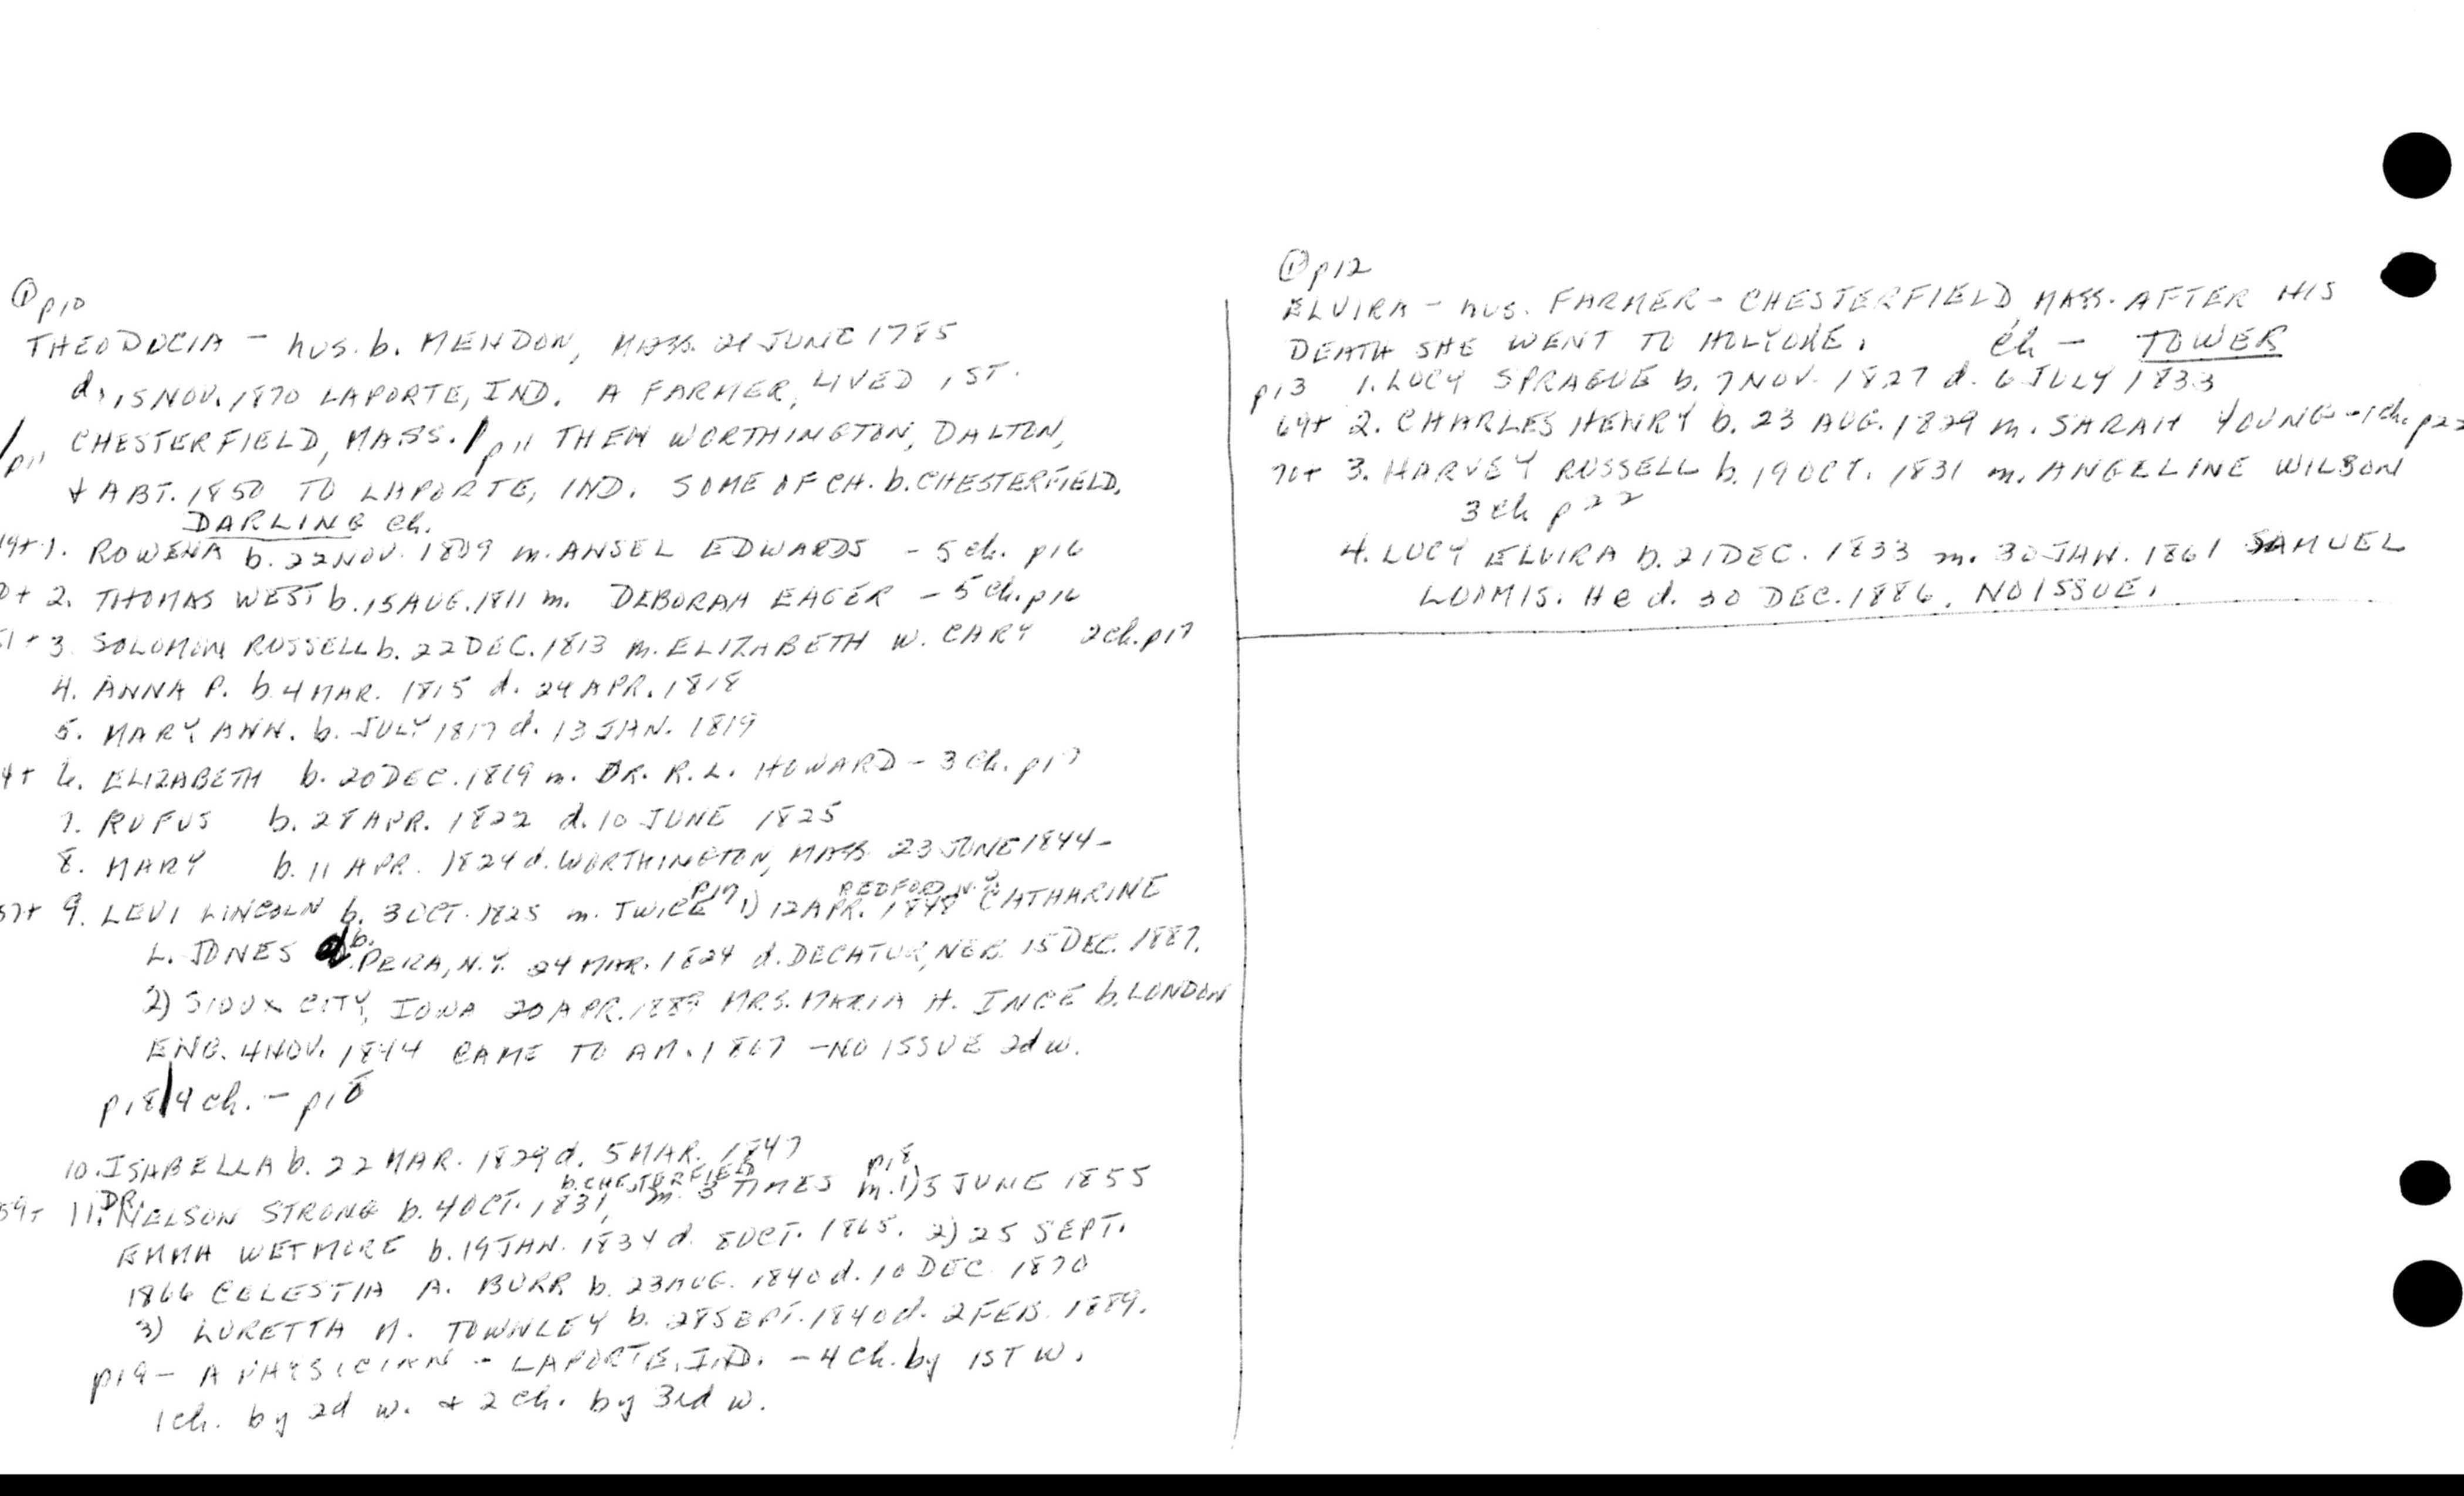 ① p10
THEODOCIA - hus. b. MENDON, MASS. 21 JUNE 1785
d. 15 NOV. 1870 LAPORTE, IND. A FARMER, LIVED 1ST.
/p11 CHESTERFIELD, MASS. /p11 THEN WORTHINGTON, DALTON,
& ABT. 1850 TO LAPORTE, IND. SOME OF CH. b. CHESTERFIELD.
DARLING ch.
1. ROWENA b. 22 NOV. 1809 m. ANSEL EDWARDS - 5 ch. p16
2. THOMAS WEST b. 15 AUG. 1811 m. DEBORAH EAGER - 5 ch. p16
3. SOLOMON RUSSELL b. 22 DEC. 1813 m. ELIZABETH W. CARY 2 ch. p17
4. ANNA P. b. 4 MAR. 1815 d. 24 APR. 1818
5. MARY ANN. b. JULY 1817 d. 13 JAN. 1819
6. ELIZABETH b. 20 DEC. 1819 m. DR. R. L. HOWARD - 3 ch. p17
7. RUFUS b. 28 APR. 1822 d. 10 JUNE 1825
8. MARY b. 11 APR. 1824 d. WORTHINGTON, MASS 23 JUNE 1844 -
p17 REDFORD N.Y.
57+ 9. LEVI LINCOLN b. 3 OCT. 1825 m. TWICE 1) 12 APR. 1848 CATHARINE
L. JONES b. PERA, N.Y. 24 MAR. 1824 d. DECATUR, NEB. 15 DEC. 1887.
2) SIOUX CITY, IOWA 20 APR. 1889 MRS. MARIA H. INCE b. LONDON
ENG. 4 NOV. 1844 CAME TO AM. 1867 - NO ISSUE 2d w.
p18/4 ch. - p18
10. ISABELLA b. 22 MAR. 1829 d. 5 MAR. 1847
b. CHESTERFIELD p18
59+ 11. DR. NELSON STRONG b. 4 OCT. 1831, m. 3 TIMES m. 1) 5 JUNE 1855
EMMA WETMORE b. 19 JAN. 1834 d. 8 OCT. 1865. 2) 25 SEPT.
1866 CELESTIA A. BURR b. 23 AUG. 1840 d. 10 DEC. 1870
3) LORETTA M. TOWNLEY b. 28 SEPT. 1840 d. 2 FEB. 1889.
p19 - A PHYSICIAN - LAPORTE, IND. - 4 ch. by 1ST W.
1 ch. by 2d w. & 2 ch. by 3rd w.
① p12
ELVIRA - hus. FARMER - CHESTERFIELD, MASS. AFTER HIS
DEATH SHE WENT TO HOLYOKE. ch - TOWER
p13 1. LUCY SPRAGUE b. 7 NOV. 1827 d. 6 JULY 1833
69+ 2. CHARLES HENRY b. 23 AUG. 1829 m. SARAH YOUNG - 1 ch. p22
70+ 3. HARVEY RUSSELL b. 19 OCT. 1831 m. ANGELINE WILSON
3 ch p22
4. LUCY ELVIRA b. 21 DEC. 1833 m. 30 JAN. 1861 SAMUEL
LOOMIS. He d. 30 DEC. 1886. NO ISSUE.